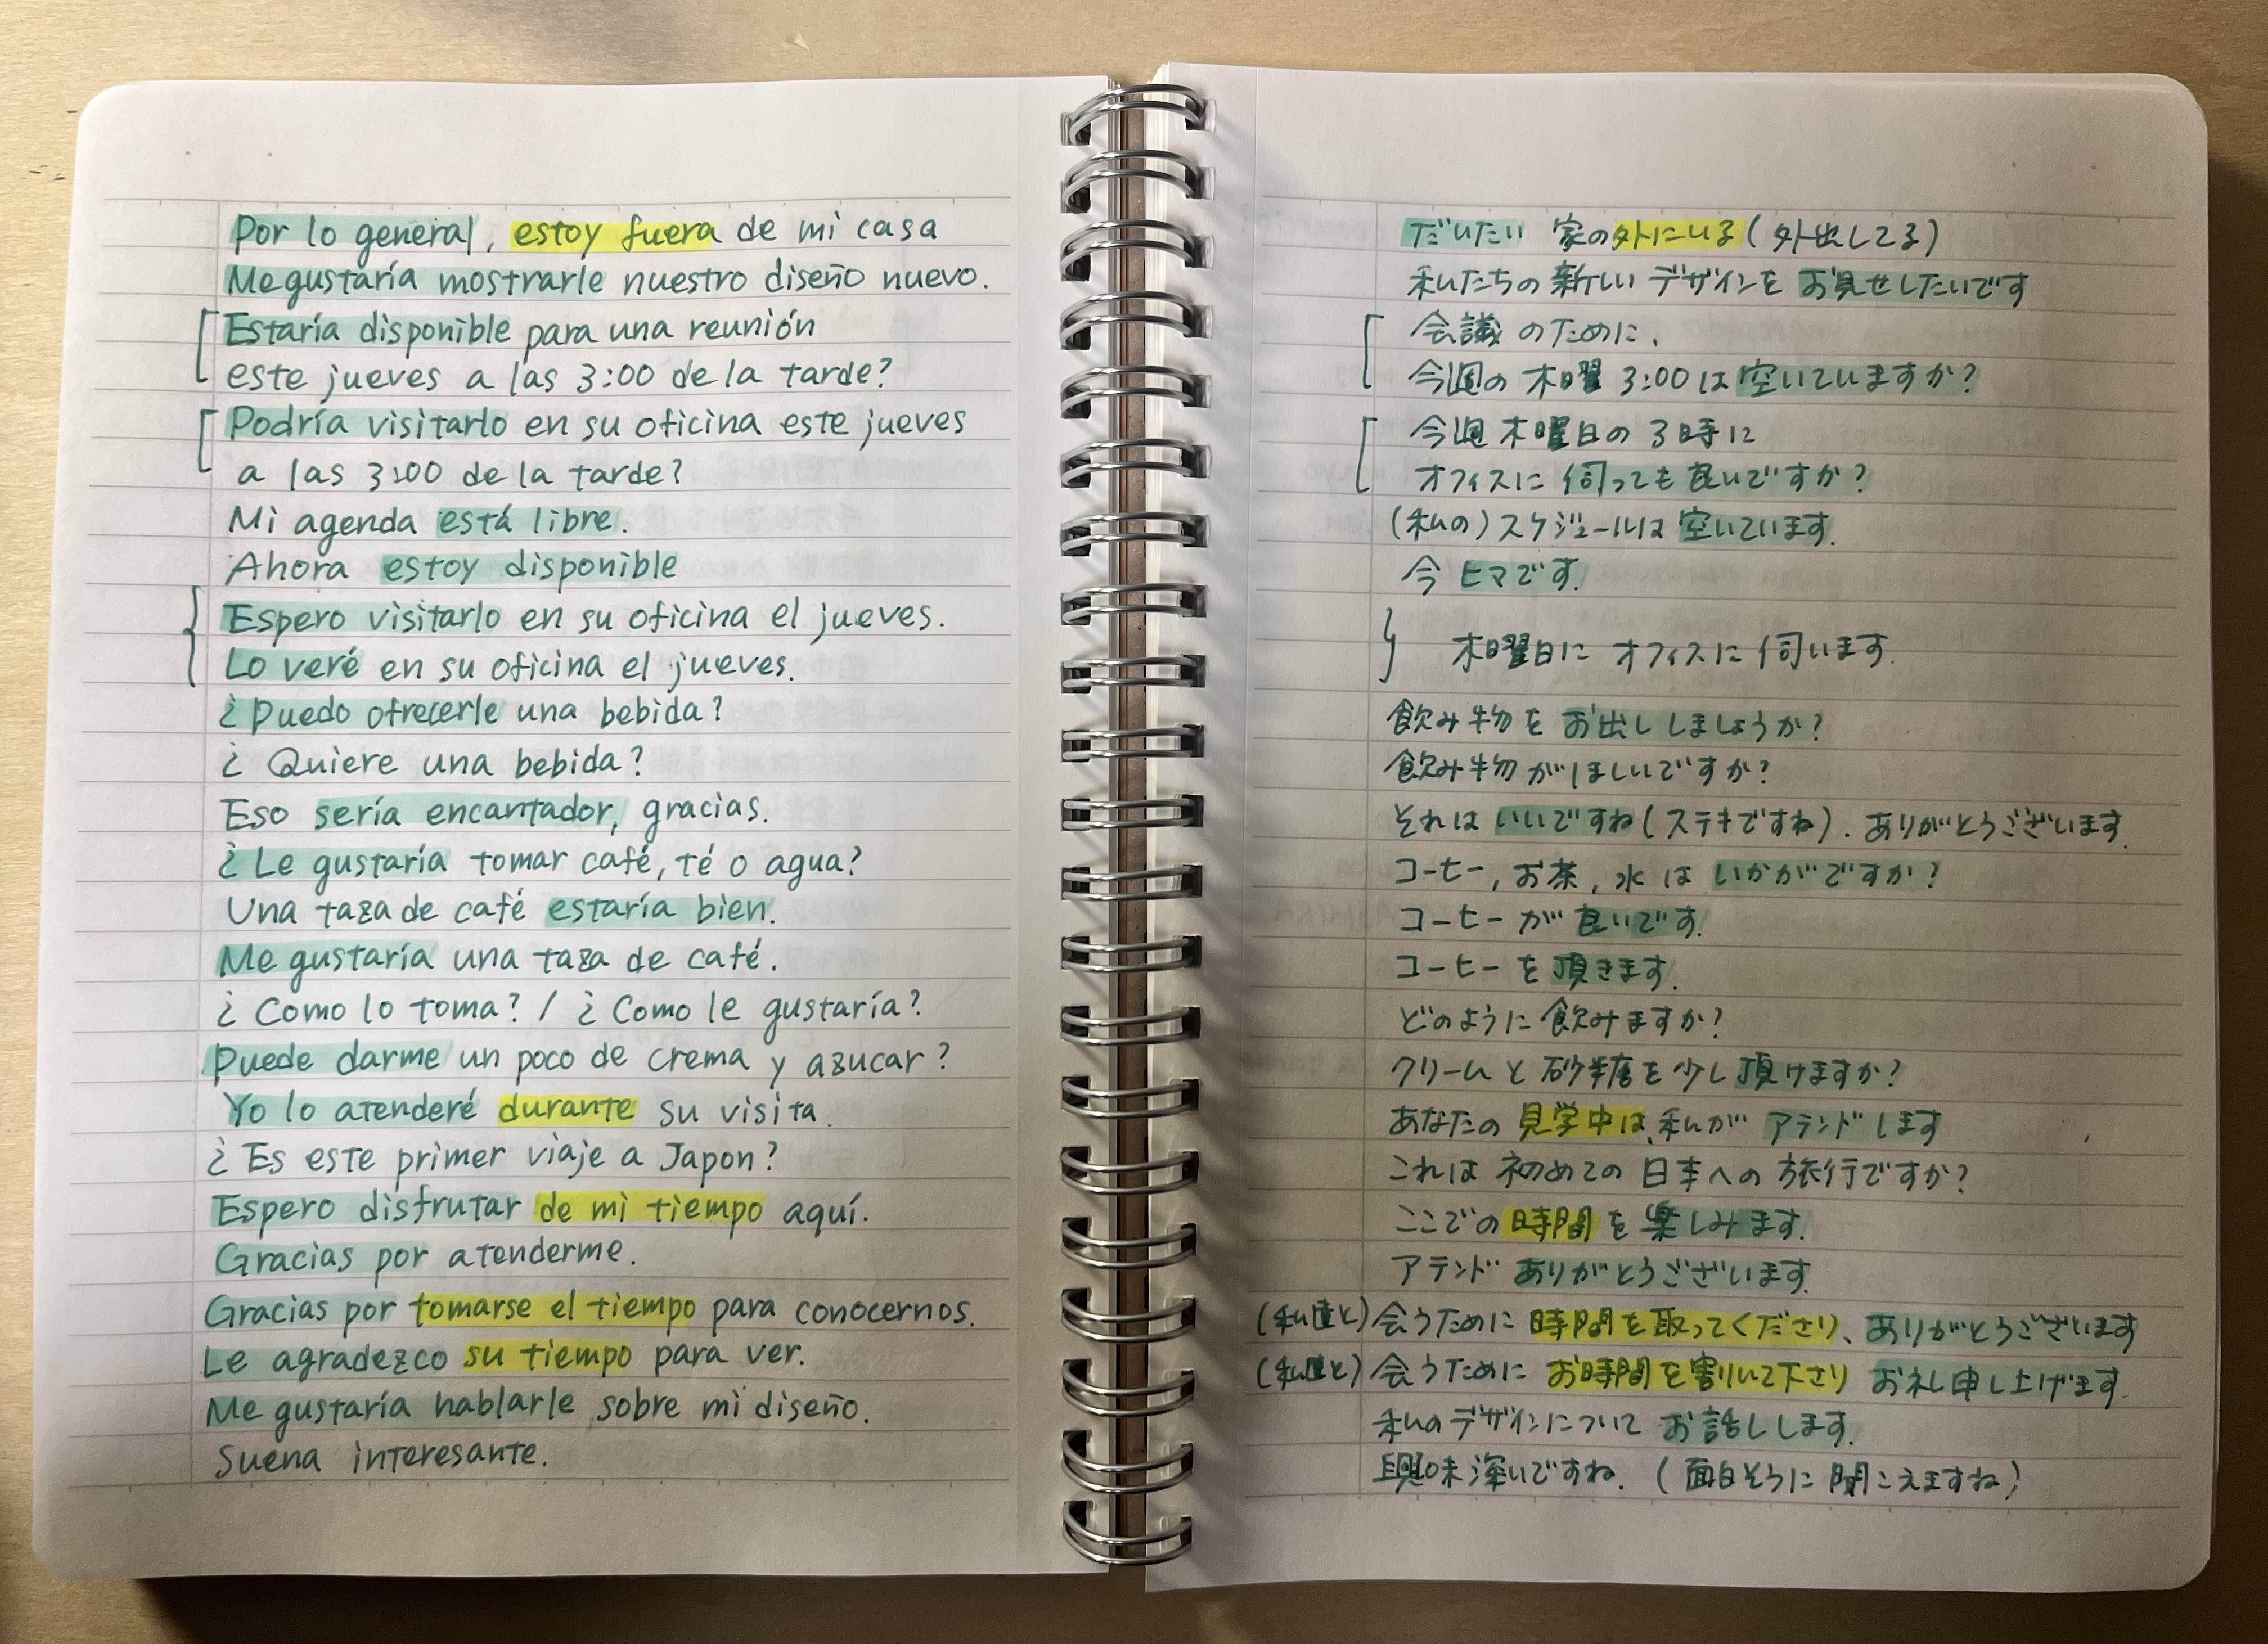 Por lo general, estoy fuera de mi casa
Me gustaría mostrarle nuestro diseño nuevo.
Estaría disponible para una reunión
este jueves a las 3:00 de la tarde?
Podría visitarlo en su oficina este jueves
a las 3:00 de la tarde?
Mi agenda está libre.
Ahora estoy disponible
Espero visitarlo en su oficina el jueves.
Lo veré en su oficina el jueves.
¿Puedo ofrecerle una bebida?
¿Quiere una bebida?
Eso sería encantador, gracias.
¿Le gustaría tomar café, té o agua?
Una taza de café estaría bien.
Me gustaría una taza de café.
¿Como lo toma? / ¿Como le gustaría?
Puede darme un poco de crema y azucar?
Yo lo atenderé durante su visita.
¿Es este primer viaje a Japon?
Espero disfrutar de mi tiempo aquí.
Gracias por atenderme.
Gracias por tomarse el tiempo para conocernos.
Le agradezco su tiempo para ver.
Me gustaría hablarle sobre mi diseño.
Suena interesante.
だいたい 家の外にいる(外出してる)
私たちの新しいデザインをお見せしたいです
会議のために、
今週の木曜 3:00は空いていますか?
今週木曜日の3時に
オフィスに伺っても良いですか?
(私の)スケジュールは空いています.
今ヒマです.
木曜日にオフィスに伺います.
飲み物をお出ししましょうか?
飲み物がほしいですか?
それはいいですね(ステキですね). ありがとうございます.
コーヒー, お茶, 水はいかがですか?
コーヒーが良いです.
コーヒーを頂きます.
どのように飲みますか?
クリームと砂糖を少し頂けますか?
あなたの見学中は、私がアテンドします
これは初めての日本への旅行ですか?
ここでの時間を楽しみます.
アテンドありがとうございます.
(私達と)会うために時間を取ってくださり、ありがとうございます
(私達と)会うためにお時間を割いて下さりお礼申し上げます.
私のデザインについてお話しします.
興味深いですね.(面白そうに聞こえますね)